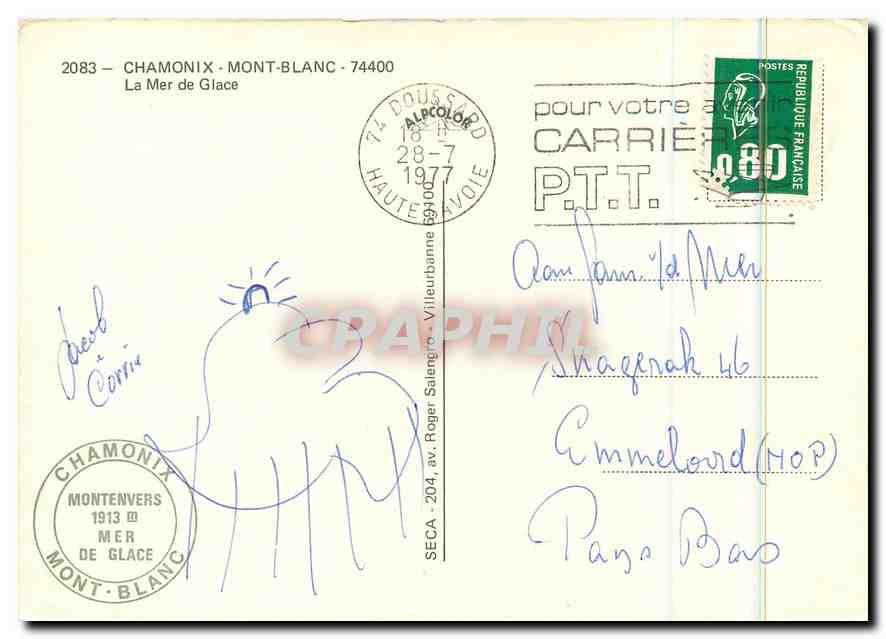 2083 – CHAMONIX - MONT-BLANC - 74400
La Mer de Glace
74 DOUSSARD
ALPCOLOR
18 H
28-7
1977
HAUTE SAVOIE
pour votre avenir
CARRIÈRES
P.T.T.
POSTES
RÉPUBLIQUE FRANÇAISE
0,80
Aan Fam. v/d Mer
Skagerak 46
Emmeloord (NOP)
Pays Bas
Jacob
Corrie
CHAMONIX
MONTENVERS
1913 m
MER
DE GLACE
MONT-BLANC
SECA - 204, av. Roger Salengro - Villeurbanne 69100
CPAPHIL